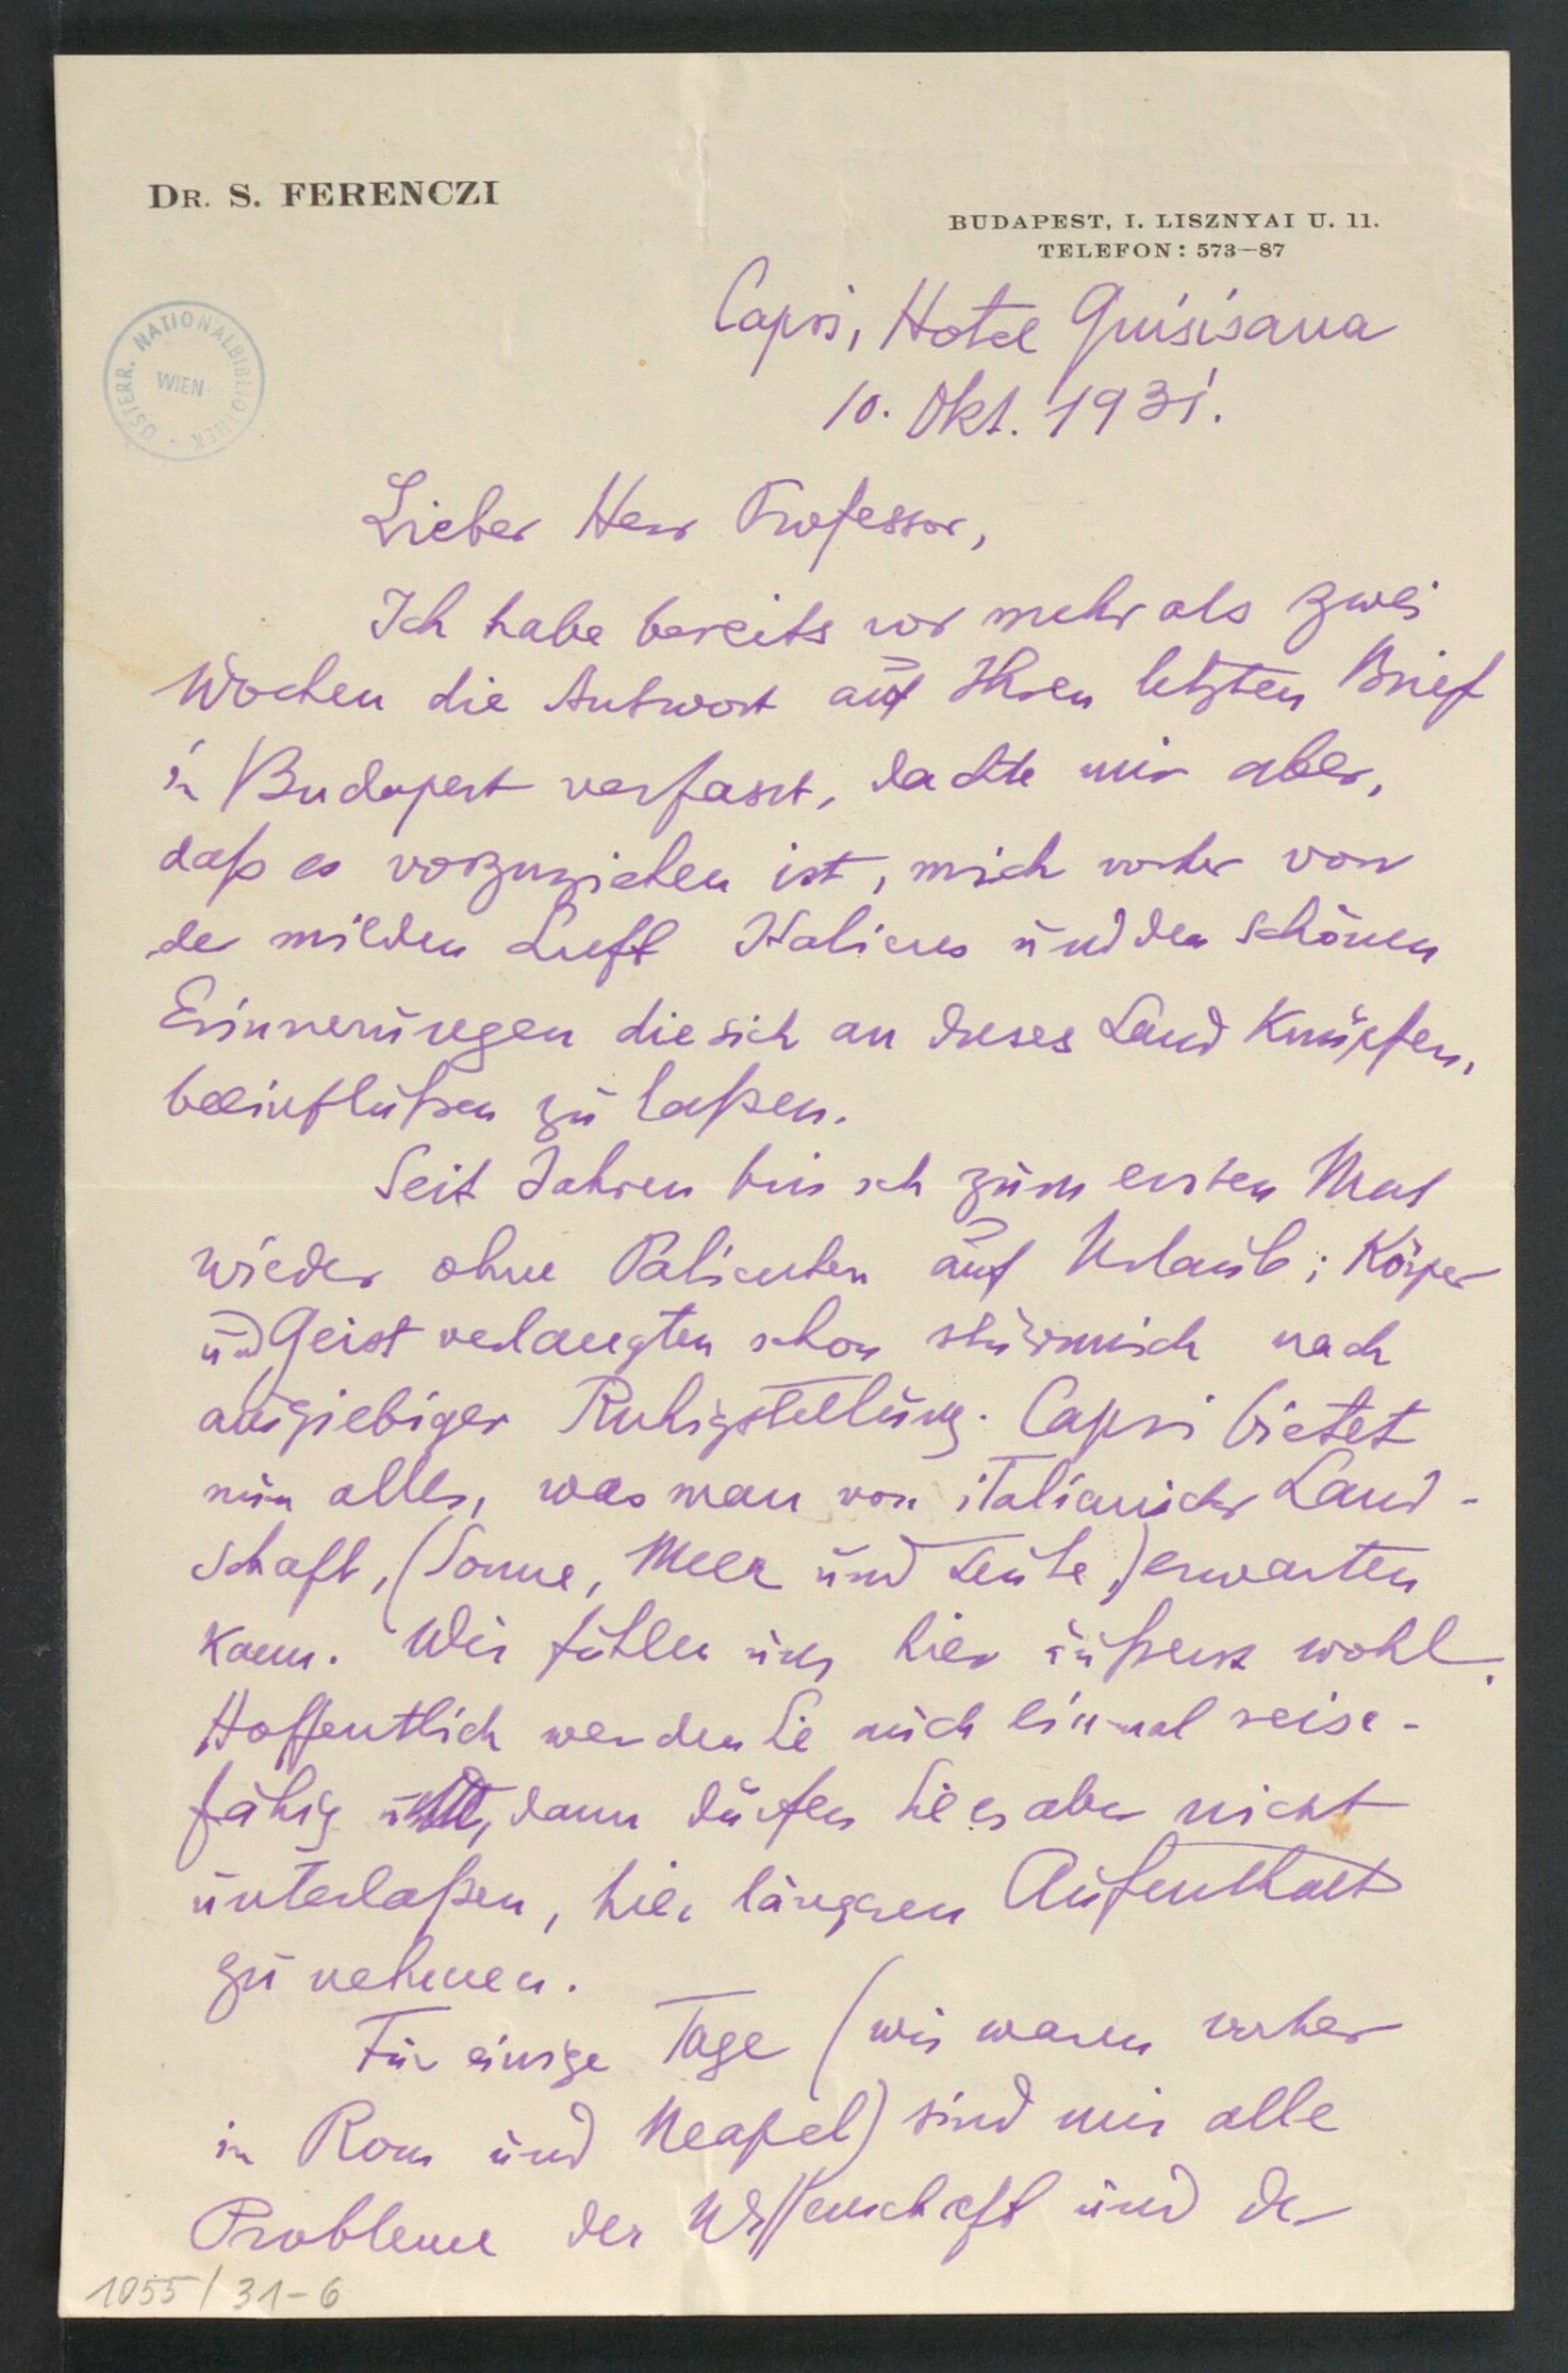 DR. S. FERENCZI
BUDAPEST, I. LISZNYAI U. 11.
TELEFON: 573—87
ÖSTERR. NATIONALBIBLIOTHEK
WIEN
Capri, Hotel Quisisana
10. Okt. 1931.
Lieber Herr Professor,
Ich habe bereits vor mehr als zwei
Wochen die Antwort auf Ihren letzten Brief
in Budapest verfasst, dachte mir aber,
daß es vorzuziehen ist, mich vorher von
der milden Luft Italiens und den schönen
Erinnerungen die sich an dieses Land knüpfen,
beeinflußen zu laßen.
Seit Jahren bin ich zum ersten Mal
wieder ohne Patienten auf Urlaub; Körper
und Geist verlangten schon stürmisch nach
ausgiebiger Ruhigstellung. Capri bietet
nun alles, was man von italienischer Land-
schaft, (Sonne, Meer und Leute,) erwarten
kann. Wir fühlen uns hier äußerst wohl.
Hoffentlich werden Sie auch einmal reise-
fähig, dann dürfen Sie es aber nicht
unterlaßen, hier längeren Aufenthalt
zu nehmen.
Für einige Tage (wir waren vorher
in Rom und Neapel) sind mir alle
Probleme der Wissenschaft und der
1055/31-6